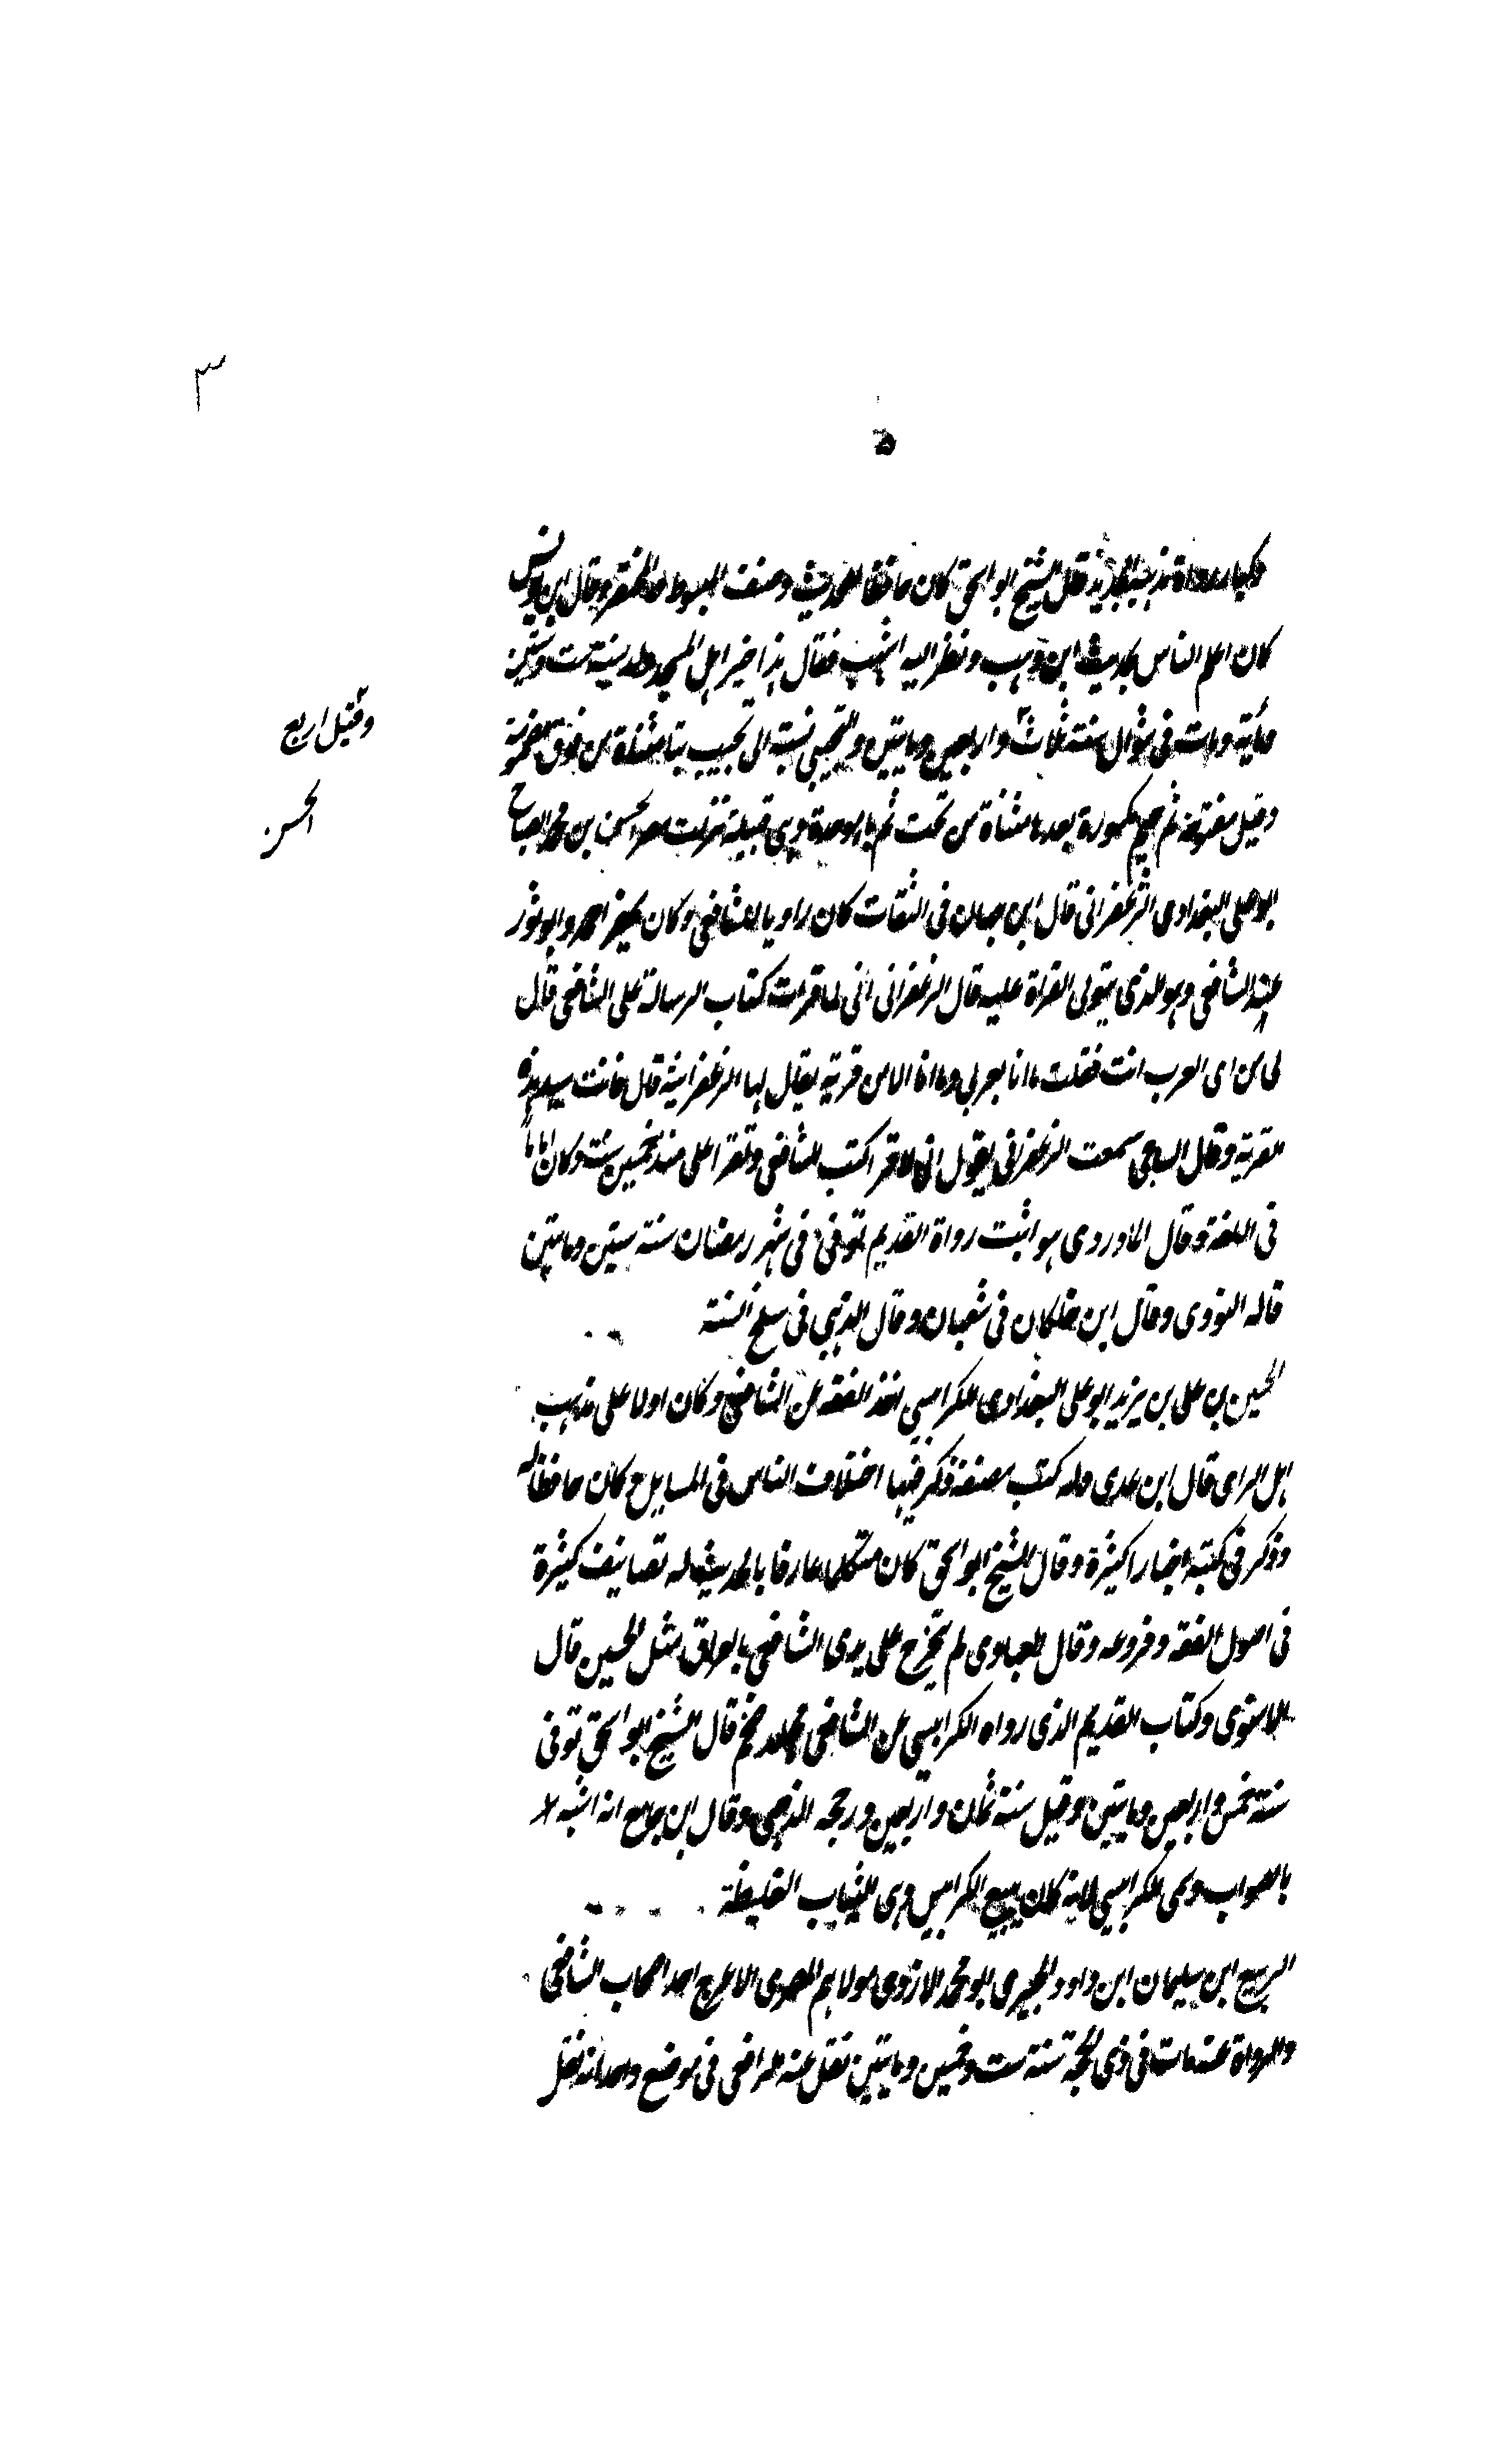 ٣
وكبار رواة مذهبه الجديد قال الشيخ ابو اسحق كان حافظا للحديث وصنف المبسوط والمختصر وقال ابن يونس
كان اعلم الناس بحديث ابن وهب ونظر اليه اشهب فقال هذا خير اهل المسجد ولد سنة ست وستين
وقيل اربع
ومائة ومات في شوال سنة ثلاث واربعين ومايتين والتجيبي نسبة الى تجيب بتا مثناة من فوق مضمومة
وقيل مفتوحة ثم جيم مكسورة بعدها مثناة من تحت ثم با موحدة وهي قبيلة نزلت مصر الحسن بن محمد الصباح
الحسن
ابو علي البغدادي الزعفراني قال ابن حبان في الثقات كان راويا للشافعي وكان يحضر احمد وابو ثور
عند الشافعي وهو الذي يتولى القراة عليه قال الزعفراني اني لما قرات كتاب الرسالة على الشافعي قال
لي من اي العرب انت فقلت ما انا بعربي وما انا الا من قرية يقال لها الزعفرانية قال فانت سيد هذه
القرية وقال الساجي سمعت الزعفراني يقول اني لاقرا كتب الشافعي وتقرا علي منذ خمسين سنة وكان اماما
في اللغة وقال الماوردي هو اثبت رواة القديم توفي في شهر رمضان سنة ستين ومايتين
قاله النووي وقال ابن خلكان في شعبان وقال الذهبي في سلخ السنة
الحسين بن علي بن يزيد ابو علي البغدادي الكرابيسي اخذ الفقه عن الشافعي وكان اولا على مذهب
اهل الراى قال ابن عدي وله كتب مصنفة ذكر فيها اختلاف الناس في المسايل وكان حافظا لها
وذكر في كتبه اخبارا كثيرة وقال الشيخ ابو اسحق كان متكلما عارفا بالحديث له تصانيف كثيرة
في اصول الفقه وفروعه وقال العبادي لم يتخرج على يدي الشافعي بالعراق مثل الحسين قال
الاسنوي وكتاب القديم الذي رواه الكرابيسي عن الشافعي مجلد ضخم قال الشيخ ابو اسحق توفي
سنة خمس واربعين ومايتين وقيل سنة ثمان واربعين ورجحه الذهبي وقال ابن جامع انه اشبه
بالصواب وسمي الكرابيسي لانه كان يبيع الكرابيس وهي الثياب الغليظة
الربيع ابن سليمان ابن داود الجيزي ابو محمد الازدي مولاهم المصري الاعرج احد اصحاب الشافعي
والرواة عنه مات في ذي الحجة سنة ست وخمسين ومايتين نقل عنه الرافعي في موضع واحد انه نقل